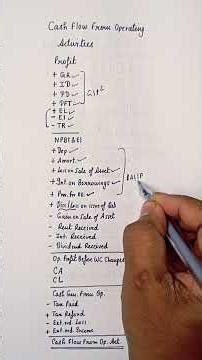 Cash Flow From Operating
Activities
Profit
+ GR ✓
+ ID ✓
+ PD ✓
+ PFT ✓
+ EL ✓
- EI ✓
- TR ✓
NPBT & EI
+ Dep ✓
+ Amort. ✓
+ Loss on Sale of Asset ✓
+ Int on Borrowings ✓
+ Pre. On RE: ✓
DALIP
+ Dis/Loss on issue of Deb
- Gain on Sale of Asset
- Rent Received
- Int. Received
- Dividend Received
Op. Profit Before WC Changes
CA
CL
Cash Gen. From Op.
- Tax Paid
+ Tax Refund
- Ext. ord. Loss
+ Ext. ord. Income
Cash Flow From Op. Act